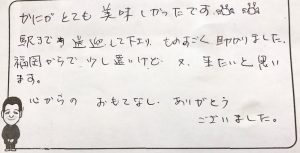 かにがとても美味しかったです。
駅まで送迎して下さり、ものすごく助かりました。
福岡からで少し遠いけど、又、来たいと思い
ます。
心からの おもてなし、ありがとう
ございました。